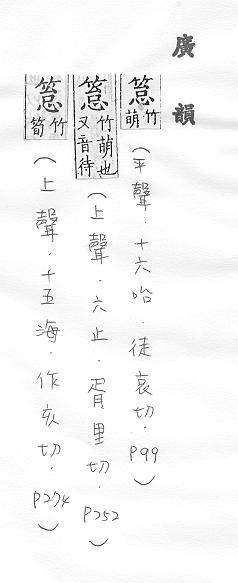 廣韻
䈚竹萌(平聲.十六咍.徒哀切.P99)
䈚竹萌也又音待(上聲.六止.胥里切.P252)
䈚竹筍(上聲.十五海.作亥切.P274)